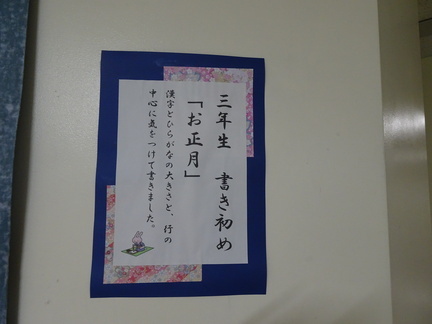 三年生　書き初め
「お正月」
漢字とひらがなの大きさと、行の
中心に気をつけて書きました。